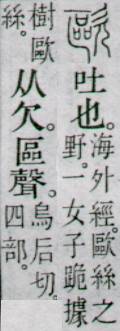 歐
吐也。海外經。歐絲之
野。一女子跪據
樹歐
絲。
从欠。區聲。烏后切。
四部。